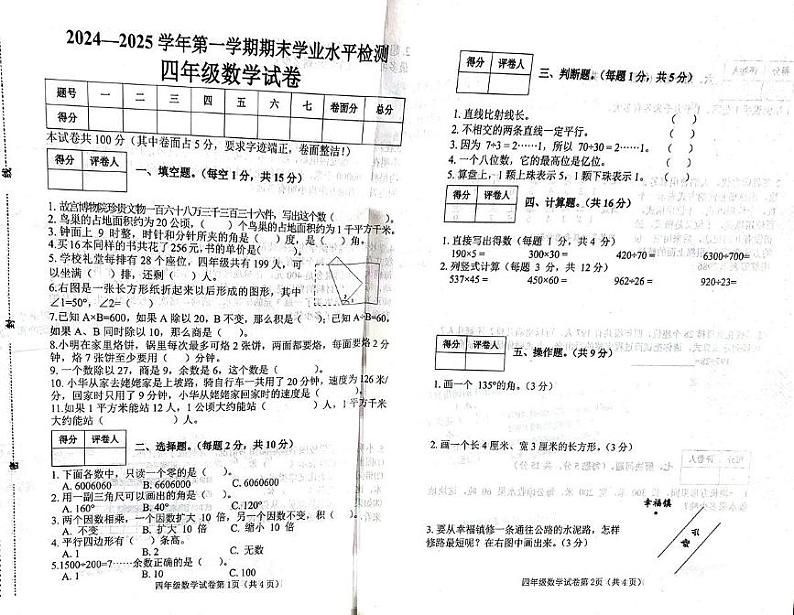 2024—2025 学年第一学期期末学业水平检测
四年级数学试卷
题号 一 二 三 四 五 六 七 卷面分 总分
得分
本试卷共 100 分（其中卷面占 5 分，要求字迹端正，卷面整洁!）
得分 评卷人
一、填空题。（每空 1 分，共 15 分）
1. 故宫博物院珍贵文物一百六十八万三千三百三十六件，写出这个数（ ）。
2. 鸟巢的占地面积约为 20 公顷，（ ）个鸟巢的占地面积约为 1 千平方千米。
3. 钟面上 9 时整，时针和分针所夹的角是（ ）度，是（ ）角。
4.买 16 本同样的书共花了 256 元，书的单价是（ ）。
5. 学校礼堂每排有 28 个座位，四年级共有 199 人，可
以坐满（ ）排，还剩（ ）人。
6.右图是一张长方形纸折起来以后形成的图形，其中
∠1=50°，∠2=（ ）
1
2
7.已知 A×B=600，如果 A 除以 20，B 不变，那么积是（ ）；已知 A÷B=60，
如果 A、B 同时除以 10，那么商是（ ）。
8.小明在家里烙饼，锅里每次最多可烙 2 张饼，两面都要烙，每面要烙 2 分
钟，烙 7 张饼至少要用（ ）分钟。
9. 一个数除以 27，商是 9，余数是 6，这个数是（ ）。
10. 小华从家去姥姥家是上坡路，骑自行车一共用了 20 分钟，速度为 126 米/
分，回家时只用了 9 分钟，小华从姥姥家回家时的速度是（ ）。
11.如果 1 平方米能站 12 人，1 公顷大约能站（ ）人，1 平方千米
大约能站（ ）人。
得分 评卷人
二、选择题。（每题 2 分，共 10 分）
1. 下面各数中，只读一个零的是（ ）。
A. 6006060 B. 6606000 C. 6060600
2. 用一副三角尺可以画出的角是（ ）。
A. 160° B. 40° C.120°
3. 两个因数相乘，一个因数扩大 10 倍，另一个因数不变，积（ ）。
A. 不变 B. 扩大 10 倍 C. 缩小 10 倍
4. 平行四边形有（ ）条高。
A. 1 B. 2 C. 无数
5.1500÷200=7……余数正确的是（ ）。
A. 1 B. 10 C. 100
四年级数学试卷第 1页（共 4 页）
得分 评卷人
三、判断题。（每题 1 分，共 5 分）
1. 直线比射线长。 （ ）
2. 不相交的两条直线一定平行。 （ ）
3. 因为 7÷3=2……1，所以 70÷30=2……1。 （ ）
4. 一个八位数，它的最高位是亿位。 （ ）
5. 算盘上，1 颗上珠表示 5，1 颗下珠表示 1。 （ ）
得分 评卷人
四、计算题。（共 16 分）
1. 直接写出得数（每题 1 分，共 4 分）
190×5 = 300×30 = 420÷70 = 6300÷700=
2. 列竖式计算（每题 3 分，共 12 分）
537×45 = 450×60 = 962÷26 = 920÷23=
得分 评卷人
五、操作题。（共 9 分）
1. 画一个 135°的角。（3 分）
2. 画一个长 4 厘米、宽 3 厘米的长方形。（3 分）
3. 要从幸福镇修一条通往公路的水泥路，怎样
修路最短呢？在右图中画出来。（3 分）
幸福镇
公路
四年级数学试卷第 2页（共 4 页）